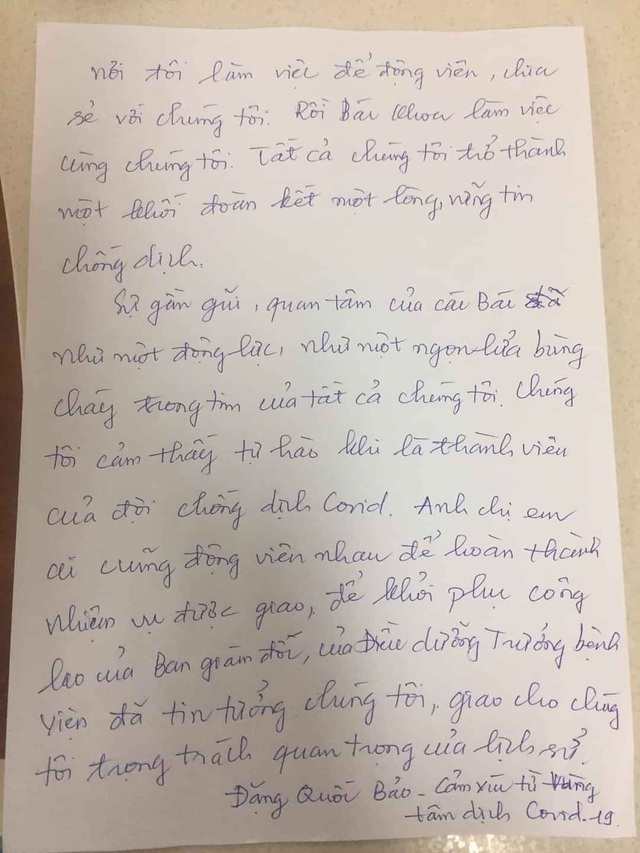 nơi tôi làm việc để động viên, chia
sẻ với chúng tôi. Rồi Bác Khoa làm việc
cùng chúng tôi. Tất cả chúng tôi trở thành
một khối đoàn kết một lòng, vững tin
chống dịch.
Sự gần gũi, quan tâm của các Bác đã
như một động lực, như một ngọn lửa bùng
cháy trong tim của tất cả chúng tôi. Chúng
tôi cảm thấy tự hào khi là thành viên
của đội chống dịch Covid. Anh chị em
ai cũng động viên nhau để hoàn thành
nhiệm vụ được giao, để khỏi phụ công
lao của Ban giám đốc, của Điều dưỡng Trưởng bệnh
viện đã tin tưởng chúng tôi, giao cho chúng
tôi trọng trách quan trọng của lịch sử.
Đặng Quốc Bảo - Cảm xúc từ vùng
tâm dịch Covid-19.